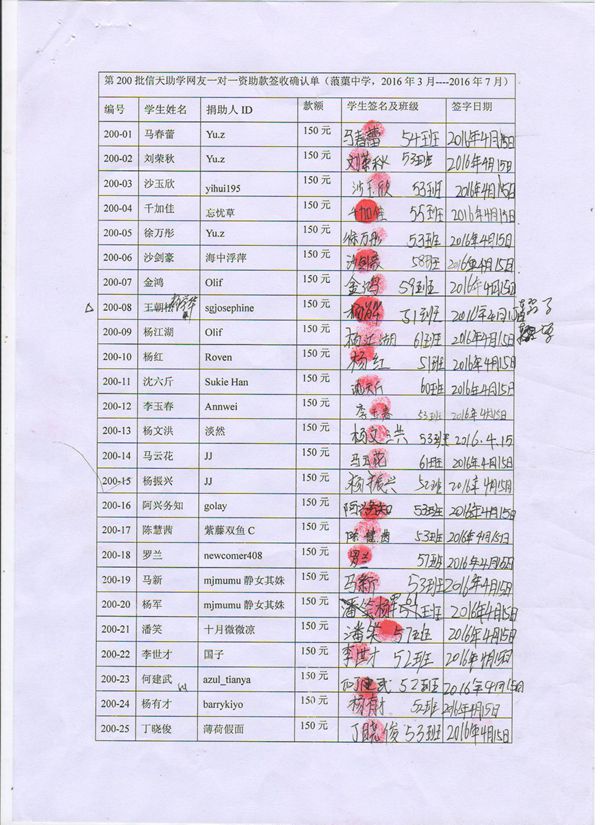 第 200 批信天助学网友一对一资助款签收确认单（蒗蕖中学，2016 年 3 月----2016 年 7 月）
编号 学生姓名 捐助人 ID 款额 学生签名及班级 签字日期
200-01 马春蕾 Yu.z 150 元 马春蕾 54班 2016年4月15日
200-02 刘荣秋 Yu.z 150 元 刘荣秋 53班 2016年4月15日
200-03 沙玉欣 yihui195 150 元 沙玉欣 53班 2016年4月15日
200-04 千加佳 忘忧草 150 元 千加佳 55班 2016年4月15日
200-05 徐万彤 Yu.z 150 元 徐万彤 53班 2016年4月15日
200-06 沙剑豪 海中浮萍 150 元 沙剑豪 58班 2016年4月15日
200-07 金鸿 Olif 150 元 金鸿 59班 2016年4月15日
200-08 王朝 sgjosephine 150 元 51班 2016年4月15日
200-09 杨江湖 Olif 150 元 杨江湖 61班 2016年4月15日
200-10 杨红 Roven 150 元 杨红 51班 2016年4月15日
200-11 沈六斤 Sukie Han 150 元 沈六斤 60班 2016年4月15日
200-12 李玉春 Annwei 150 元 李玉春 53班 2016年4月15日
200-13 杨文洪 淡然 150 元 杨文洪 53班 2016.4.15
200-14 马云花 JJ 150 元 马云花 61班 2016年4月15日
200-15 杨振兴 JJ 150 元 杨振兴 52班 2016年4月15日
200-16 阿兴务知 golay 150 元 阿兴务知 53班 2016年4月15日
200-17 陈慧茜 紫藤双鱼 C 150 元 陈慧茜 53班 2016年4月15日
200-18 罗兰 newcomer408 150 元 罗兰 57班 2016年4月15日
200-19 马新 mjmumu 静女其姝 150 元 马新 53班 2016年4月15日
200-20 杨军 mjmumu 静女其姝 150 元 杨军 61班 2016年4月15日
200-21 潘笑 十月微微凉 150 元 潘笑 57班 2016年4月15日
200-22 李世才 国子 150 元 李世才 52班 2016年4月15日
200-23 何建武 azul_tianya 150 元 何建武 52班 2016年4月15日
200-24 杨有才 barrykiyo 150 元 杨有才 52班 2016年4月15日
200-25 丁晓俊 薄荷假面 150 元 丁晓俊 53班 2016年4月15日